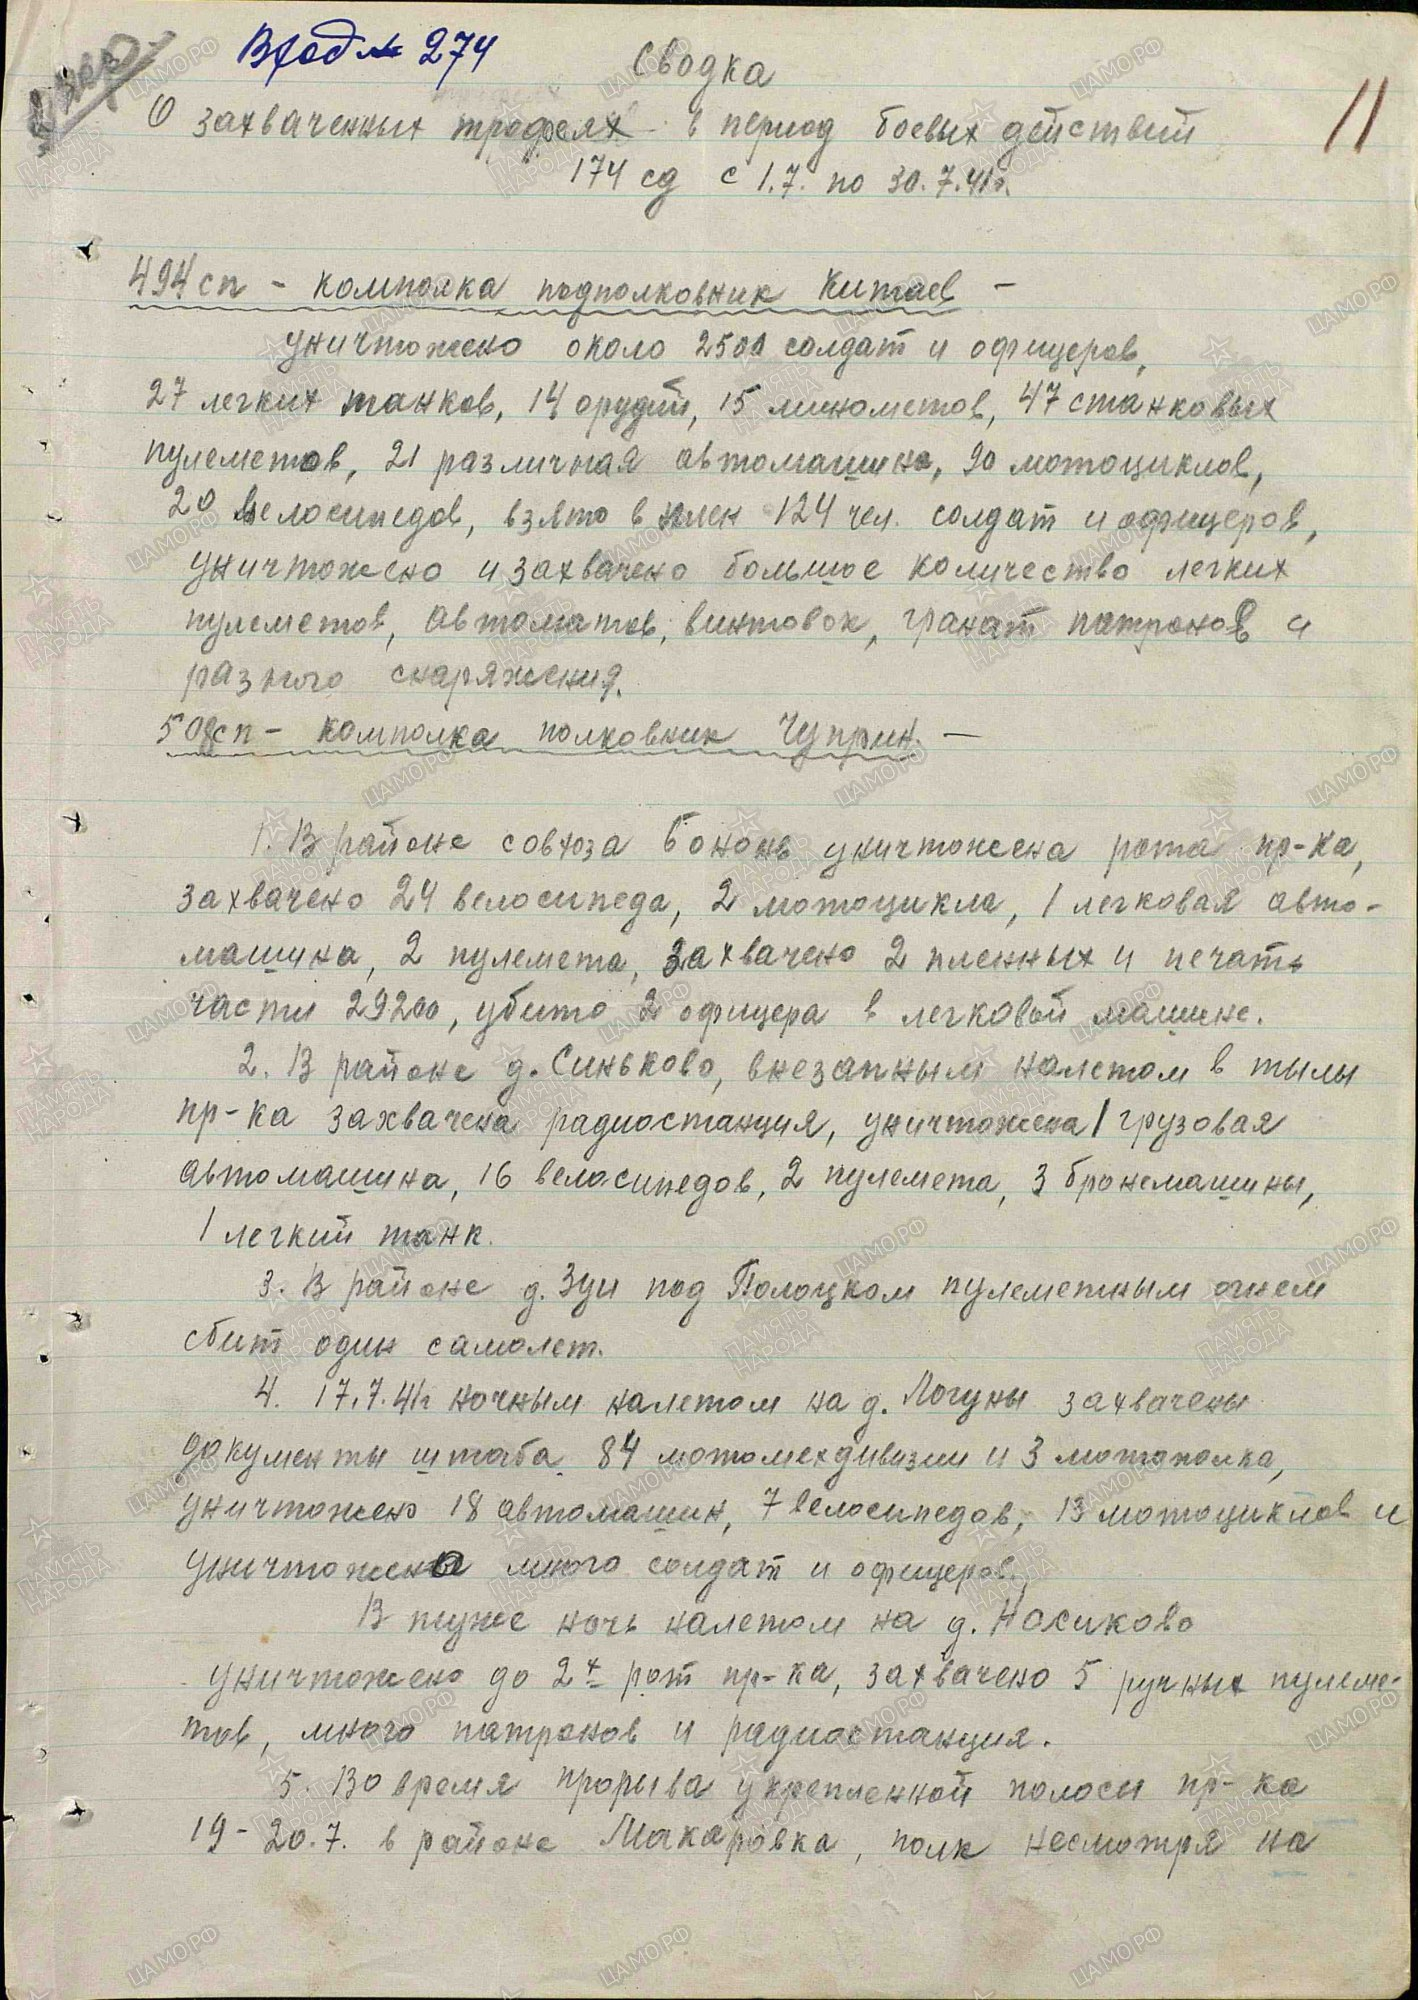 Вход № 274
Сводка
11
О захваченных трофеях в период боевых действий
174 сд с 1.7. по 30.7.41г.
494 сп - комполка подполковник Китаев -
уничтожено около 2500 солдат и офицеров,
27 легких танков, 14 орудий, 15 минометов, 47 станковых
пулеметов, 21 различная автомашина, 90 мотоциклов,
20 велосипедов, взято в плен 124 чел. солдат и офицеров,
уничтожено и захвачено большое количество легких
пулеметов, автоматов, винтовок, гранат патронов и
разного снаряжения.
508 сп - комполка полковник Чуприн. -
1. В районе совхоза Бононь уничтожена рота пр-ка,
захвачено 24 велосипеда, 2 мотоцикла, 1 легковая авто-
машина, 2 пулемета, захвачено 2 пленных и печать
части 29200, убито 2 офицера в легковой машине.
2. В районе д. Синьково, внезапным налетом в тылы
пр-ка захвачена радиостанция, уничтожена 1 грузовая
автомашина, 16 велосипедов, 2 пулемета, 3 бронемашины,
1 легкий танк.
3. В районе д. Зуи под Полоцком пулеметным огнем
сбит один самолет.
4. 17.7.41г ночным налетом на д. Логуны захвачены
документы штаба 84 мотомехдивизии и 3 мотополка,
уничтожено 18 автомашин, 7 велосипедов, 13 мотоциклов и
уничтожено много солдат и офицеров.
В туже ночь налетом на д. Носиково
уничтожено до 2х рот пр-ка, захвачено 5 ручных пулеме-
тов, много патронов и радиостанция.
5. Во время прорыва укрепленной полосы пр-ка
19-20.7. в районе Макаровка, полк несмотря на